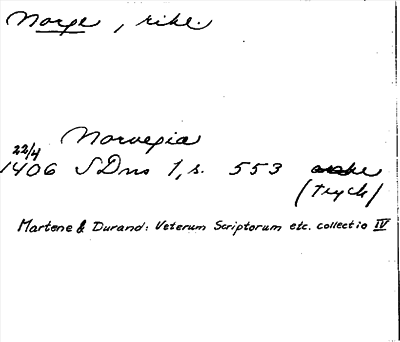 Norge, rike.
Norvegia
22/4
1406 SDns 1, s. 553
(Tryck)
Martene & Durand: Veterum Scriptorum etc. collectio IV